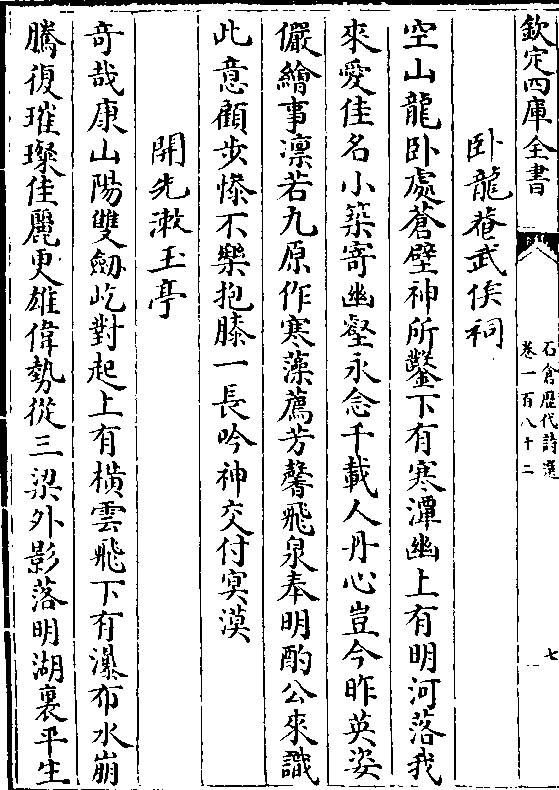 欽定四庫全書
石倉歷代詩選
卷一百八十二
七
卧龍菴武侯祠
空山龍卧處蒼壁神所鑿下有寒潭幽上有明河落我
來愛佳名小築寄幽壑永念千載人丹心豈今昨英姿
儼繪事凛若九原作寒藻薦芳馨飛泉奉明酌公來識
此意顧步慘不樂抱膝一長吟神交付冥漠
開先漱玉亭
奇哉康山陽雙劒屹對起上有横雲飛下有瀑布水崩
騰復璀璨佳麗更雄偉勢從三梁外影落明湖裏平生